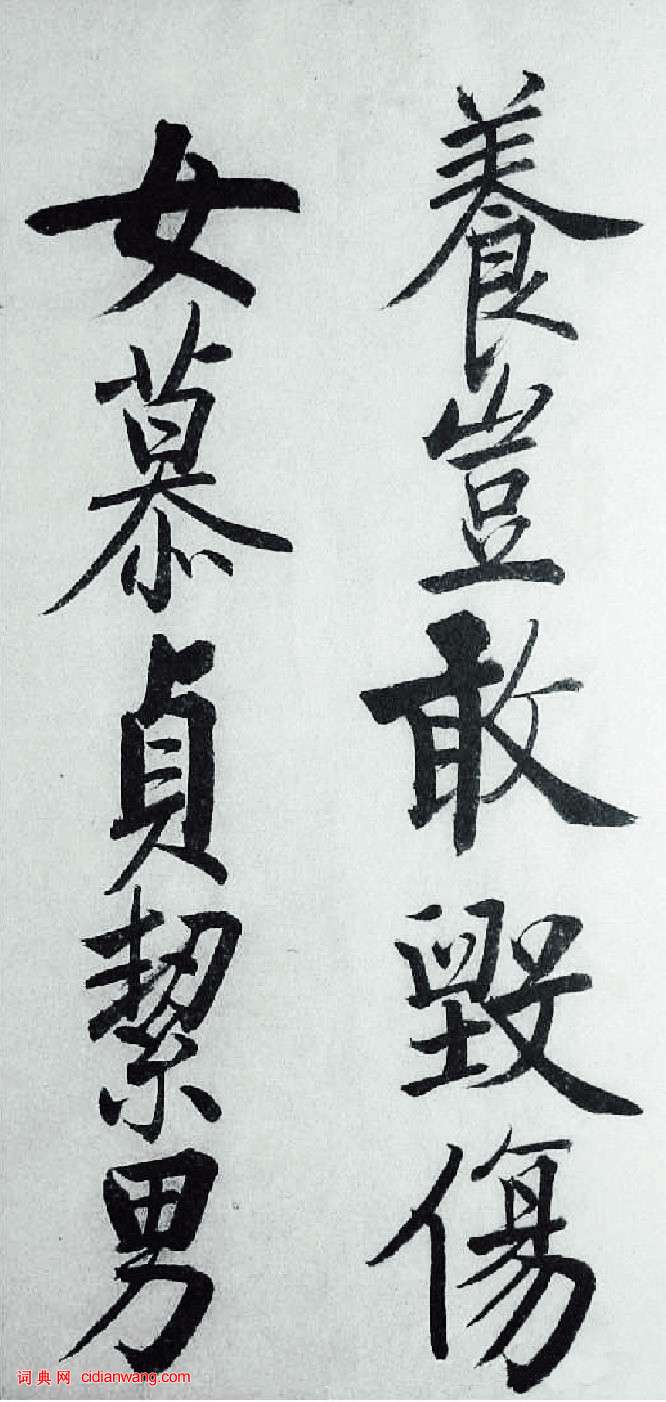 養豈敢毀傷
女慕貞絜男
词典网 cidianwang.com